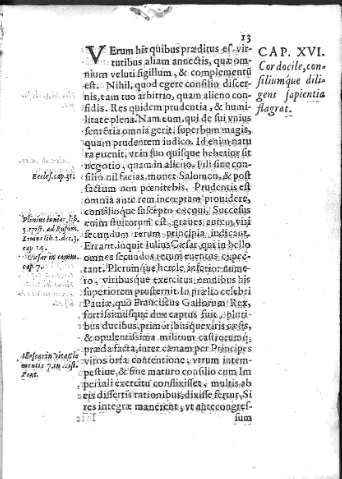 13
VErum his quibus præditus es, vir-
tutibus aliam annectis, quæ om-
nium veluti sigillum, & complementũ
est. Nihil, quod egere consilio discer-
nis, tam tuo arbitrio, quam alieno con-
fidis. Res quidem prudentia, & humi-
litate plena. Nam eum, qui de sui vnius
sententia omnia gerit, superbum magis,
quam prudentem iudico. Id enim natu-
ra euenit, vt in suo quisque hebetior sit
negotio, quam in alieno. Fili sine con-
silio nil facias, monet Salomon, & post
factum non pœnitebis. Prudentis est
omnia ante rem inceptam prouidere,
consilioque suscepto exequi. Successus
enim stultorum est, graues autem viri
secundum rerum principia iudicant.
Errant, inquit Iulius Cæsar, qui in bello
omnes secundos rerum euentus expec-
tant. Plerumque hercle inferior nume-
ro, viribusque exercitus, omnibus his
superiorem prosternit. In prælio celebri
Pauiæ, quo Franciscus Gallorum Rex,
fortissimusque dux captus fuit, pluri-
bus ducibus, primoribusque viris cæsis,
& opulentissima militum castrorumq;
præda facta, inter eæ nam per Principes
viros orta contentione, vtrum intem-
pestiue, & sine maturo consilio cum Im
periali exercitu conflixisset, multis ab
eis dissertis rationibus, dixisse fertur, Si
res integræ manerent, vt ante congres-
sum
CAP. XVI.
Cor docile, con-
siliumque dili-
gens sapientia
flagrat.
Eccles. cap. 32.
Plinius iunior, lib.
cap. 7.
Pont.